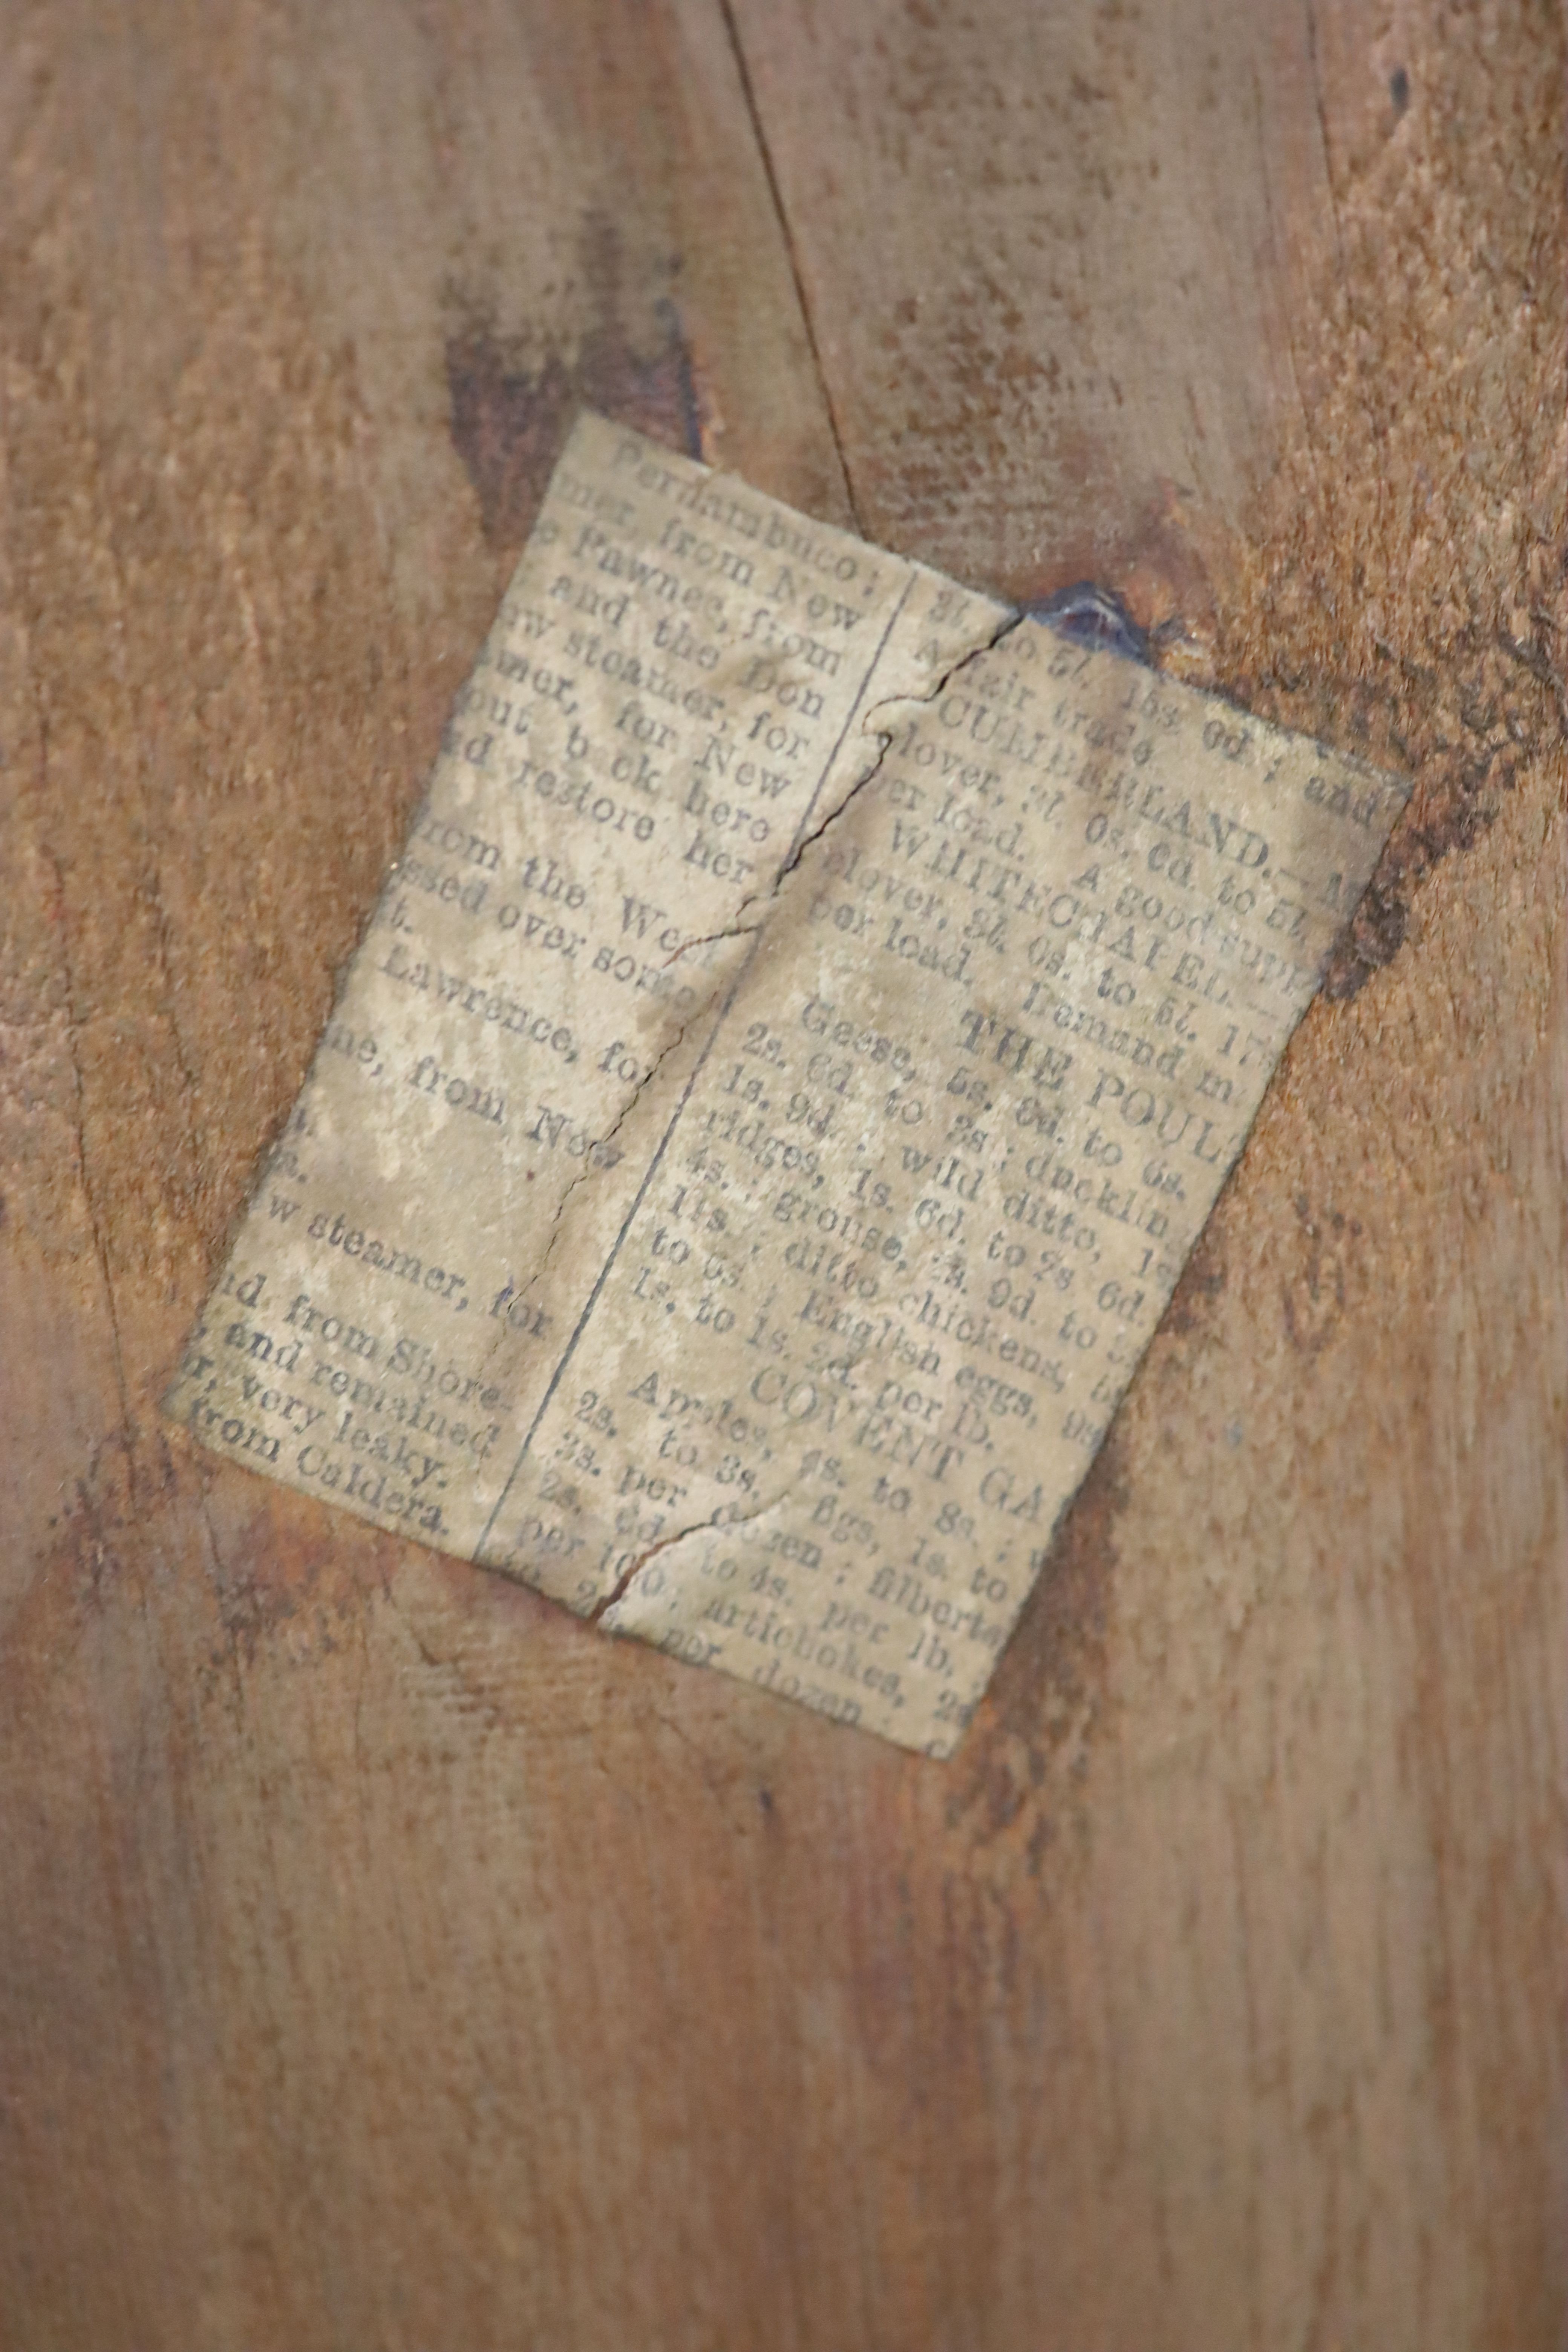 Pernambuco;
mer, from New
e Pawnee, from
and the Don
ew steamer, for
amer, for New
out b ck here
d restore her
rom the Wes
ssed over some
t.
Lawrence, for
ne, from New
t.
w steamer, for
nd from Shore-
, and remained
r, very leaky.
from Caldera.
to 5l. 15s 0d; and
A fair trade
CUMBERLAND.—
lover, 3l. 0s. 0d. to 5l.
er load. A good supp
WHITECHAPEL.—
clover, 3l. 0s. to 5l. 17s
per load.
THE POUL
Geese, 5s. 8d. to 6s.
2s. 6d. to 3s; ducklin
1s. 9d.; wild ditto, 1s
ridges, 1s. 6d. to 2s 6d.
4s.; grouse, 9d. to 3
11s.; ditto chickens,
to 6s.; English eggs, 9s
1s. to 1s. 2d. per lb.
COVENT GA
Apples, 4s. to 8s.;
2s. to 3s.; figs, 1s. to
3s. per dozen; filberts
2s. 6d. to 4s. per lb.
per 100; artichokes, 2s
per dozen